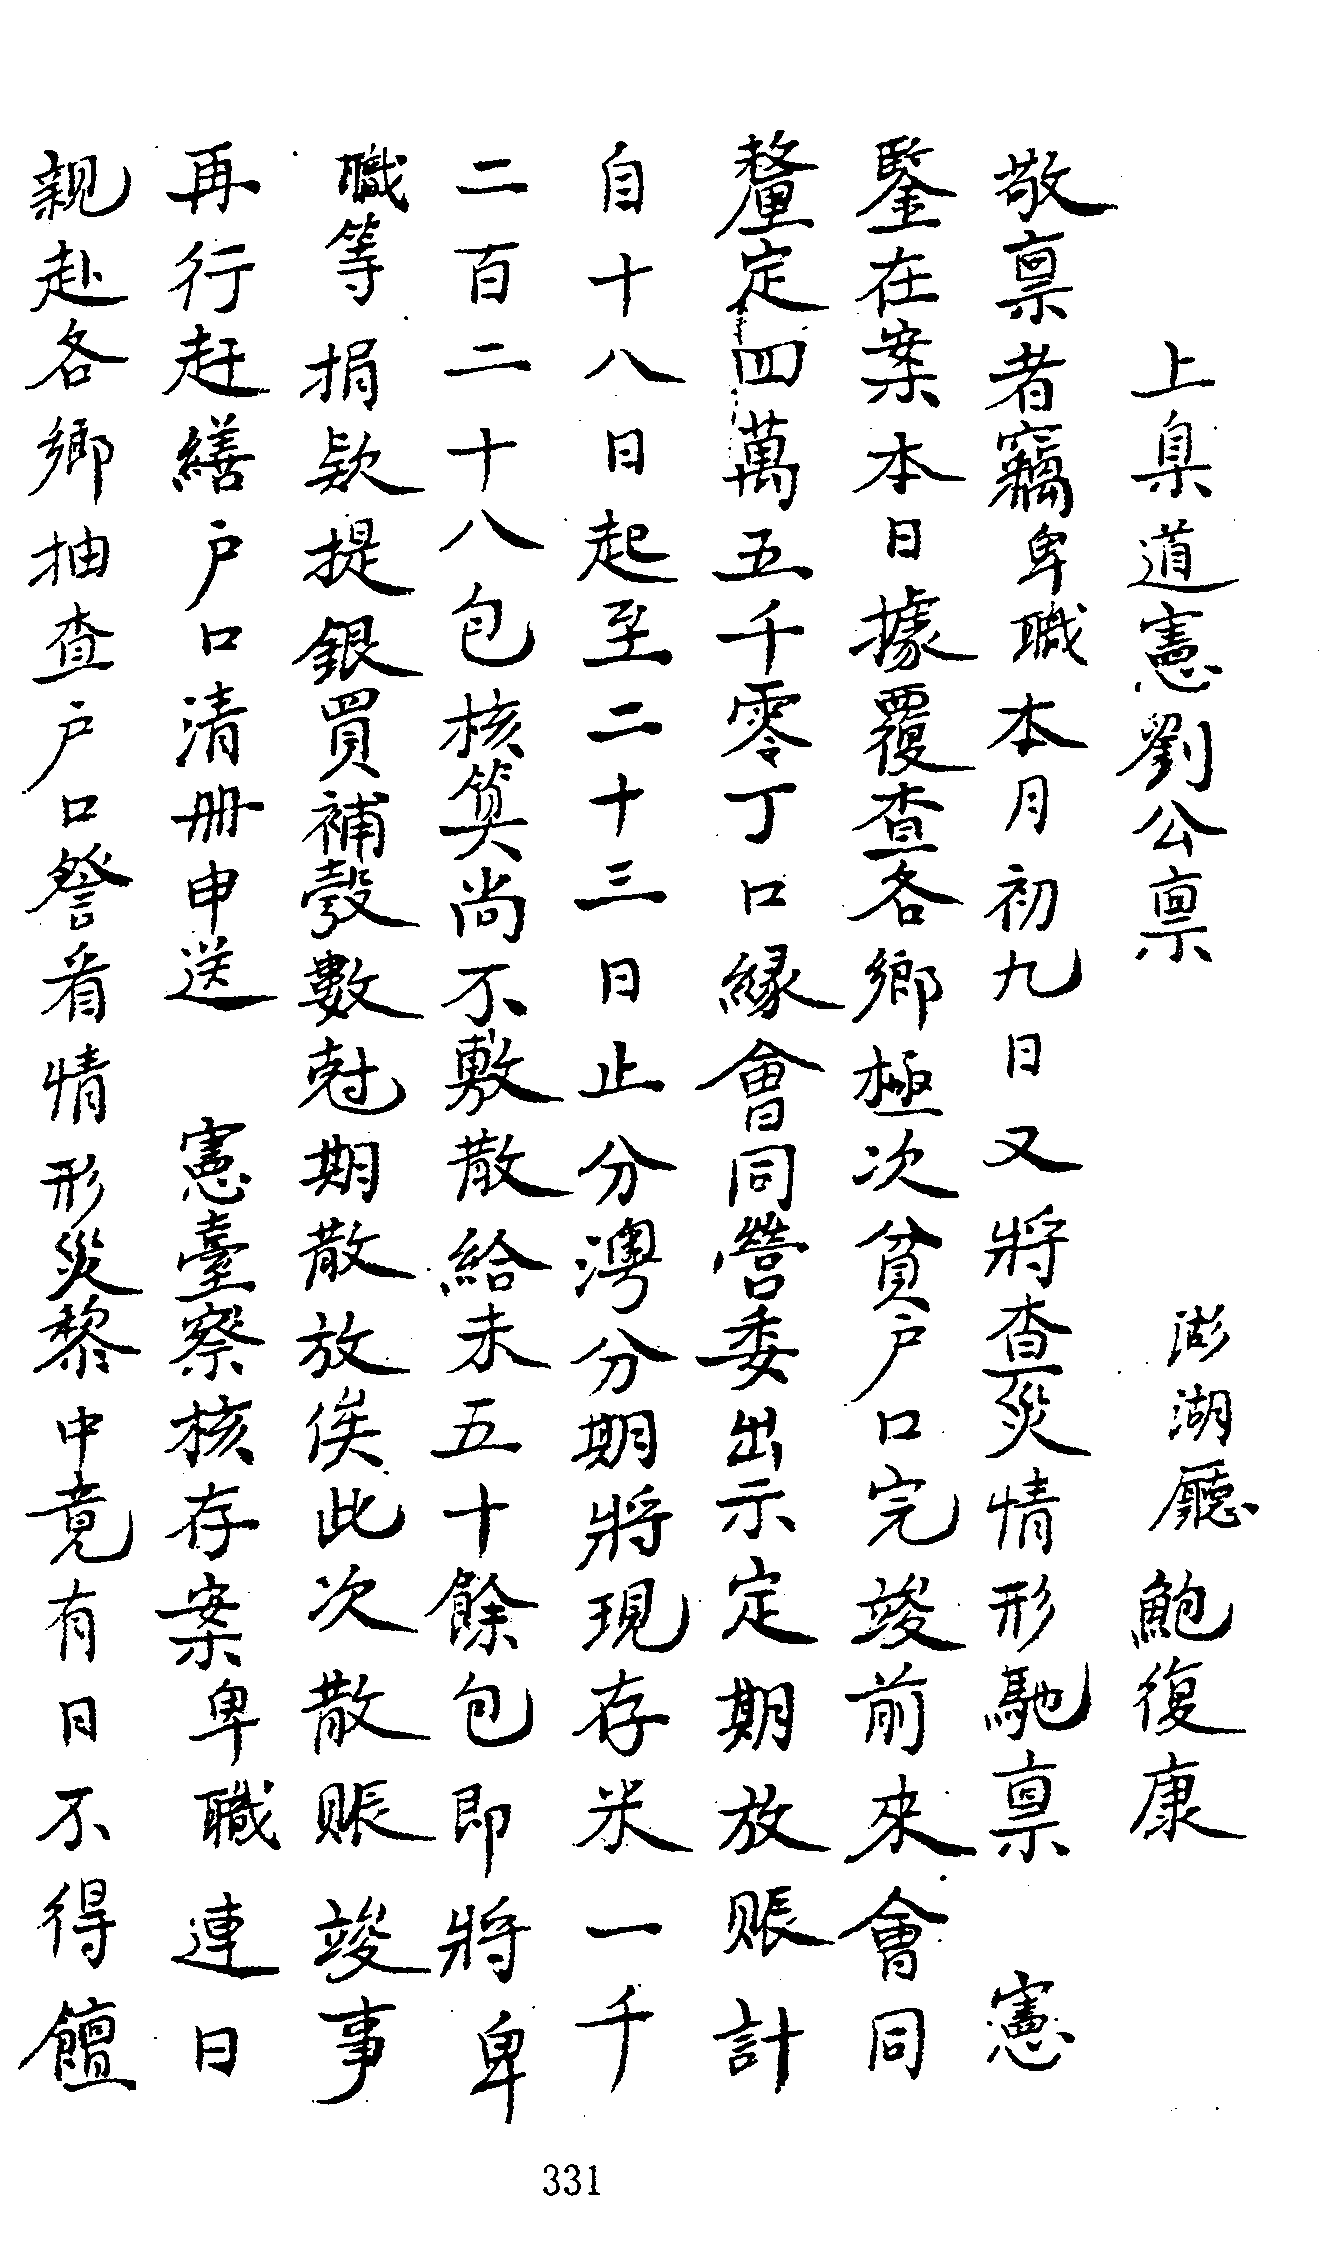 上臬道憲劉公禀　澎湖廳鮑復康
敬禀者竊卑職本月初九日又將查災情形馳禀　憲
鑒在案本日據覆查各鄉極次貧户口完竣前來會同
釐定四萬五千零丁口緣會同營委出示定期放賑計
自十八日起至二十三日止分澚分期將現存米一千
二百二十八包核算尚不敷散給未五十餘包即將卑
職等捐欵提銀買補彀數尅期散放俟此次散賑竣事
再行赶繕户口清册申送　憲臺察核存案卑職連日
親赴各鄉抽查户口詧看情形災黎中竟有日不得饘
331